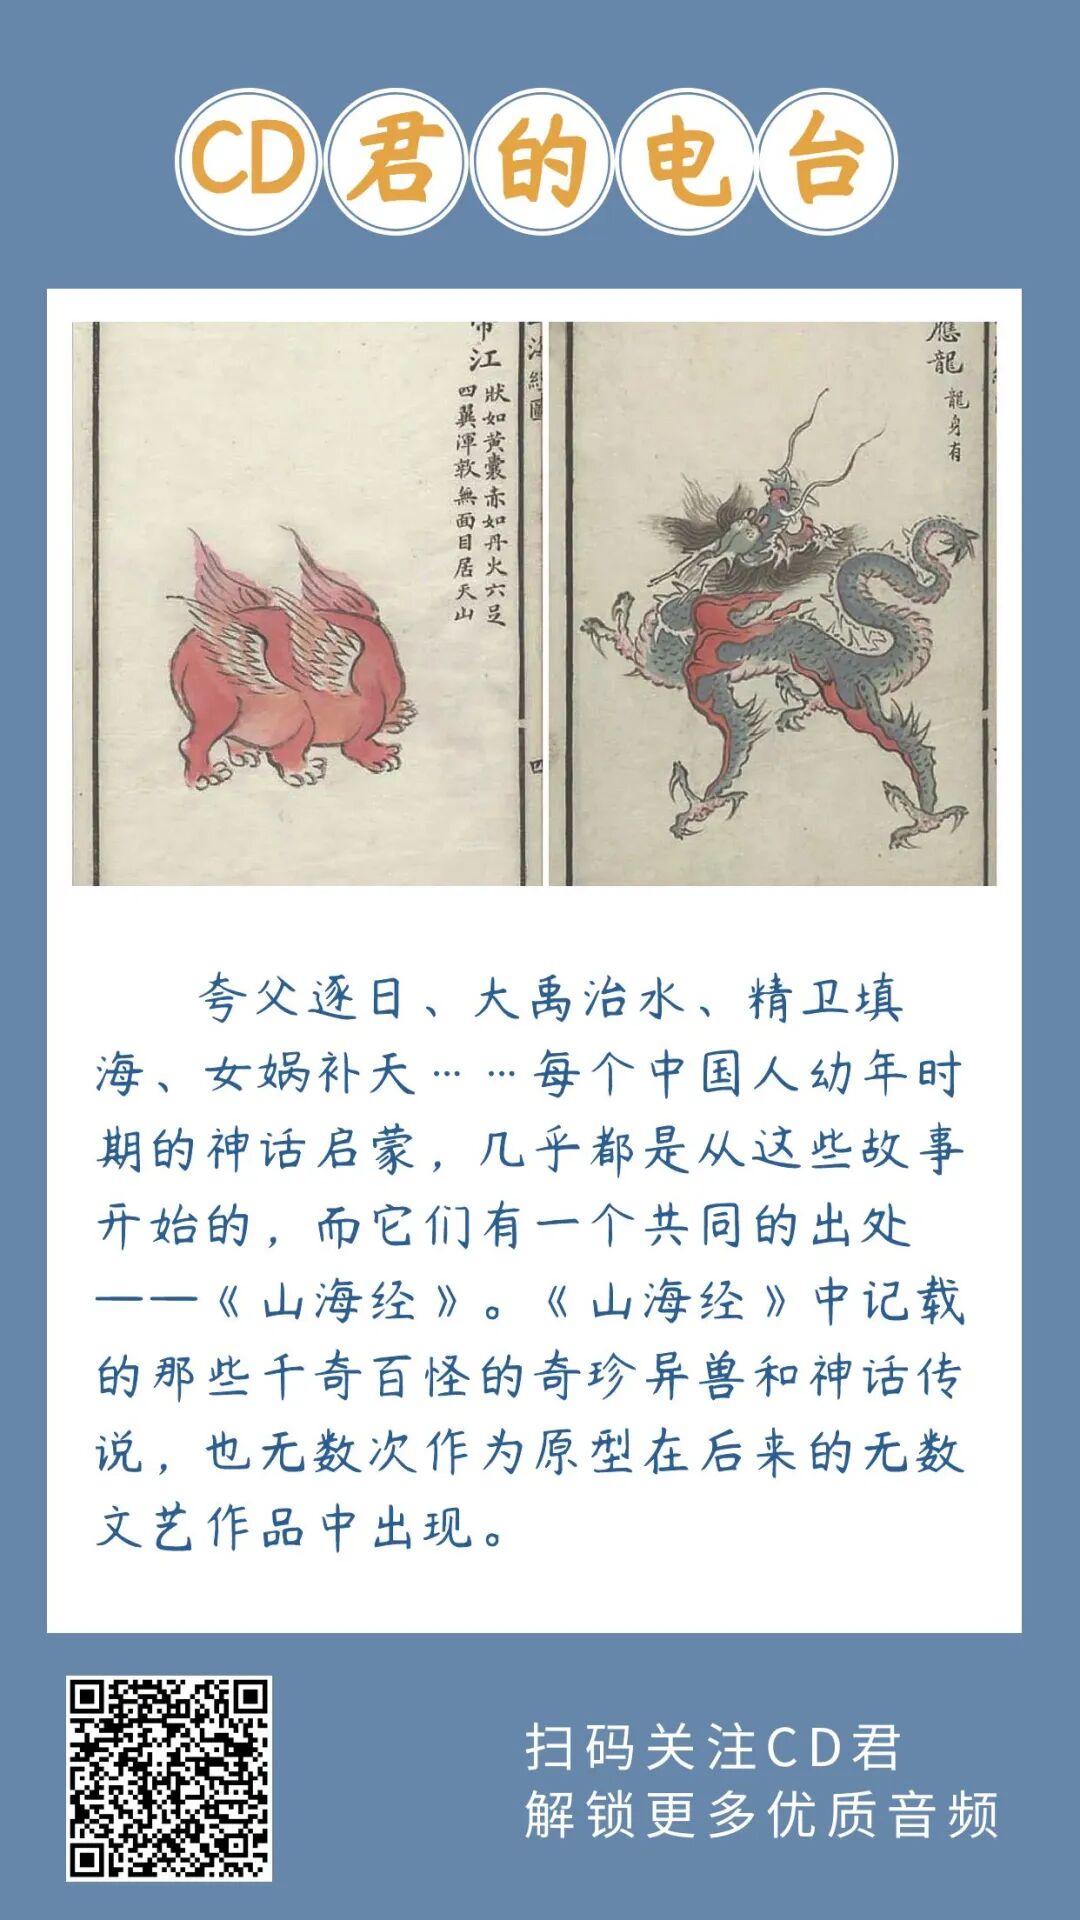 CD君的电台
帝江
狀如黄囊赤如丹火六足
四翼渾敦無面目居天山
海經圖
四
應龍
龍身有
夸父逐日、大禹治水、精卫填
海、女娲补天……每个中国人幼年时
期的神话启蒙，几乎都是从这些故事
开始的，而它们有一个共同的出处
——《山海经》。《山海经》中记载
的那些千奇百怪的奇珍异兽和神话传
说，也无数次作为原型在后来的无数
文艺作品中出现。
扫码关注CD君
解锁更多优质音频